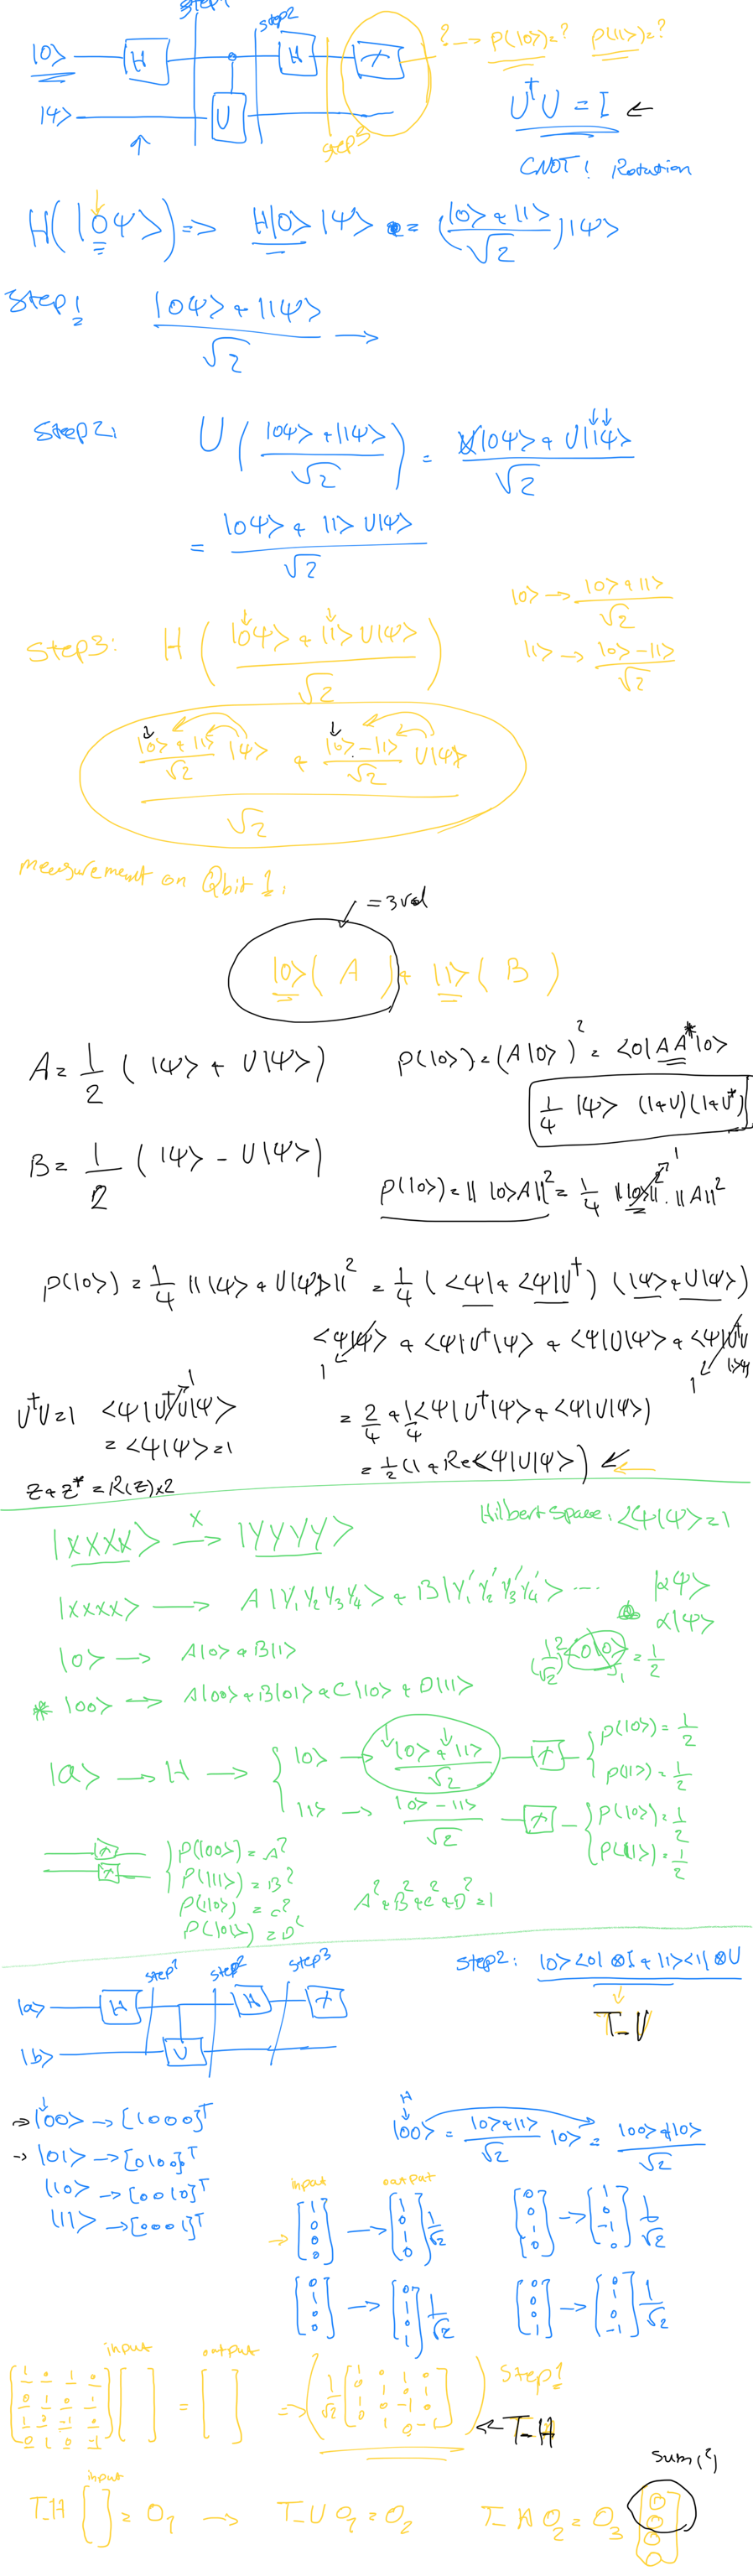 step1
step2
|0> H H ? → P(|0>)=? P(|1>)=?
|ψ> U
step3
U†U = I ←
CNOT! Rotation
H(|0ψ>) => H|0> |ψ> = (|0>+|1>/√2)|ψ>
Step1 |0ψ>+|1ψ>/√2 →
Step2: U(|0ψ>+|1ψ>/√2) = |0ψ>+U|1ψ>/√2
= |0ψ>+|1>U|ψ>/√2
|0> → |0>+|1>/√2
Step3: H(|0ψ>+|1>U|ψ>/√2)
|1> → |0>-|1>/√2
|0>+|1>/√2 |ψ> + |0>-|1>/√2 U|ψ>
√2
measurement on Qbit 1:
|0>( A ) + |1>( B )
A = 1/2 ( |ψ> + U|ψ> )
P(|0>) = (A|0>)² = <0|AA*|0>
1/4 |ψ> (1+U)(1+U*)
B = 1/2 ( |ψ> - U|ψ> )
P(|0>) = || |0>A||² = 1/4 || |0>||² . ||A||²
1
P(|0>) = 1/4 || |ψ> + U|ψ>||² = 1/4 (<ψ| + <ψ|U†) (|ψ>+U|ψ>)
<ψ|ψ> + <ψ|U†|ψ> + <ψ|U|ψ> + <ψ|U†U|ψ>
1
1
U†U=1 <ψ|U†U|ψ>
1
= <ψ|ψ> = 1
= 2/4 + 1/4 <ψ|U†|ψ> + <ψ|U|ψ>)
= 1/2 (1 + Re<ψ|U|ψ>) ←
Z+Z* = R(Z)x2
Hilbert space: <ψ|ψ>=1
|XXXX> →X |YYYY>
|XXXX> → A|Y₁Y₂Y₃Y₄> + B|Y₁'Y₂'Y₃'Y₄'> ...
|αψ>
α|ψ>
|0> → A|0>+B|1>
(1/√2)² <0|0> = 1/2
1
* |00> → A|00>+B|01>+C|10>+D|11>
|a> → H →
|0> → |0>+|1>/√2
P(|0>)=1/2
P(|1>)=1/2
|1> → |0>-|1>/√2
P(|0>)=1/2
P(|1>)=1/2
P(|00>)=A²
P(|11>)=B²
P(|10>)=C²
P(|01>)=D²
A²+B²+C²+D²=1
step1 step2 step3
Step2: |0><0|⊗I + |1><1|⊗U
|a> H H
T_U
|b> U
→ |00> → [1000]ᵀ
→ |01> → [0100]ᵀ
|10> → [0010]ᵀ
|11> → [0001]ᵀ
H
|00> = |0>+|1>/√2 |0> = |00>+|10>/√2
input output
[1 0 0 0] → [1 0 1 0] 1/√2
[0 0 1 0] → [1 0 -1 0] 1/√2
[0 1 0 0] → [0 1 0 1] 1/√2
[0 0 0 1] → [0 1 0 -1] 1/√2
input output
[1 0 1 0
0 1 0 1
1 0 -1 0
0 1 0 -1] [ ] = [ ] => (1/√2 [1 0 1 0
0 1 0 1
1 0 -1 0
0 1 0 -1])
Step1
← T_H
sum(²)
input
T_H [ ] = O₁ → T_U O₁ = O₂ T_H O₂ = O₃ [0 0 0 0]